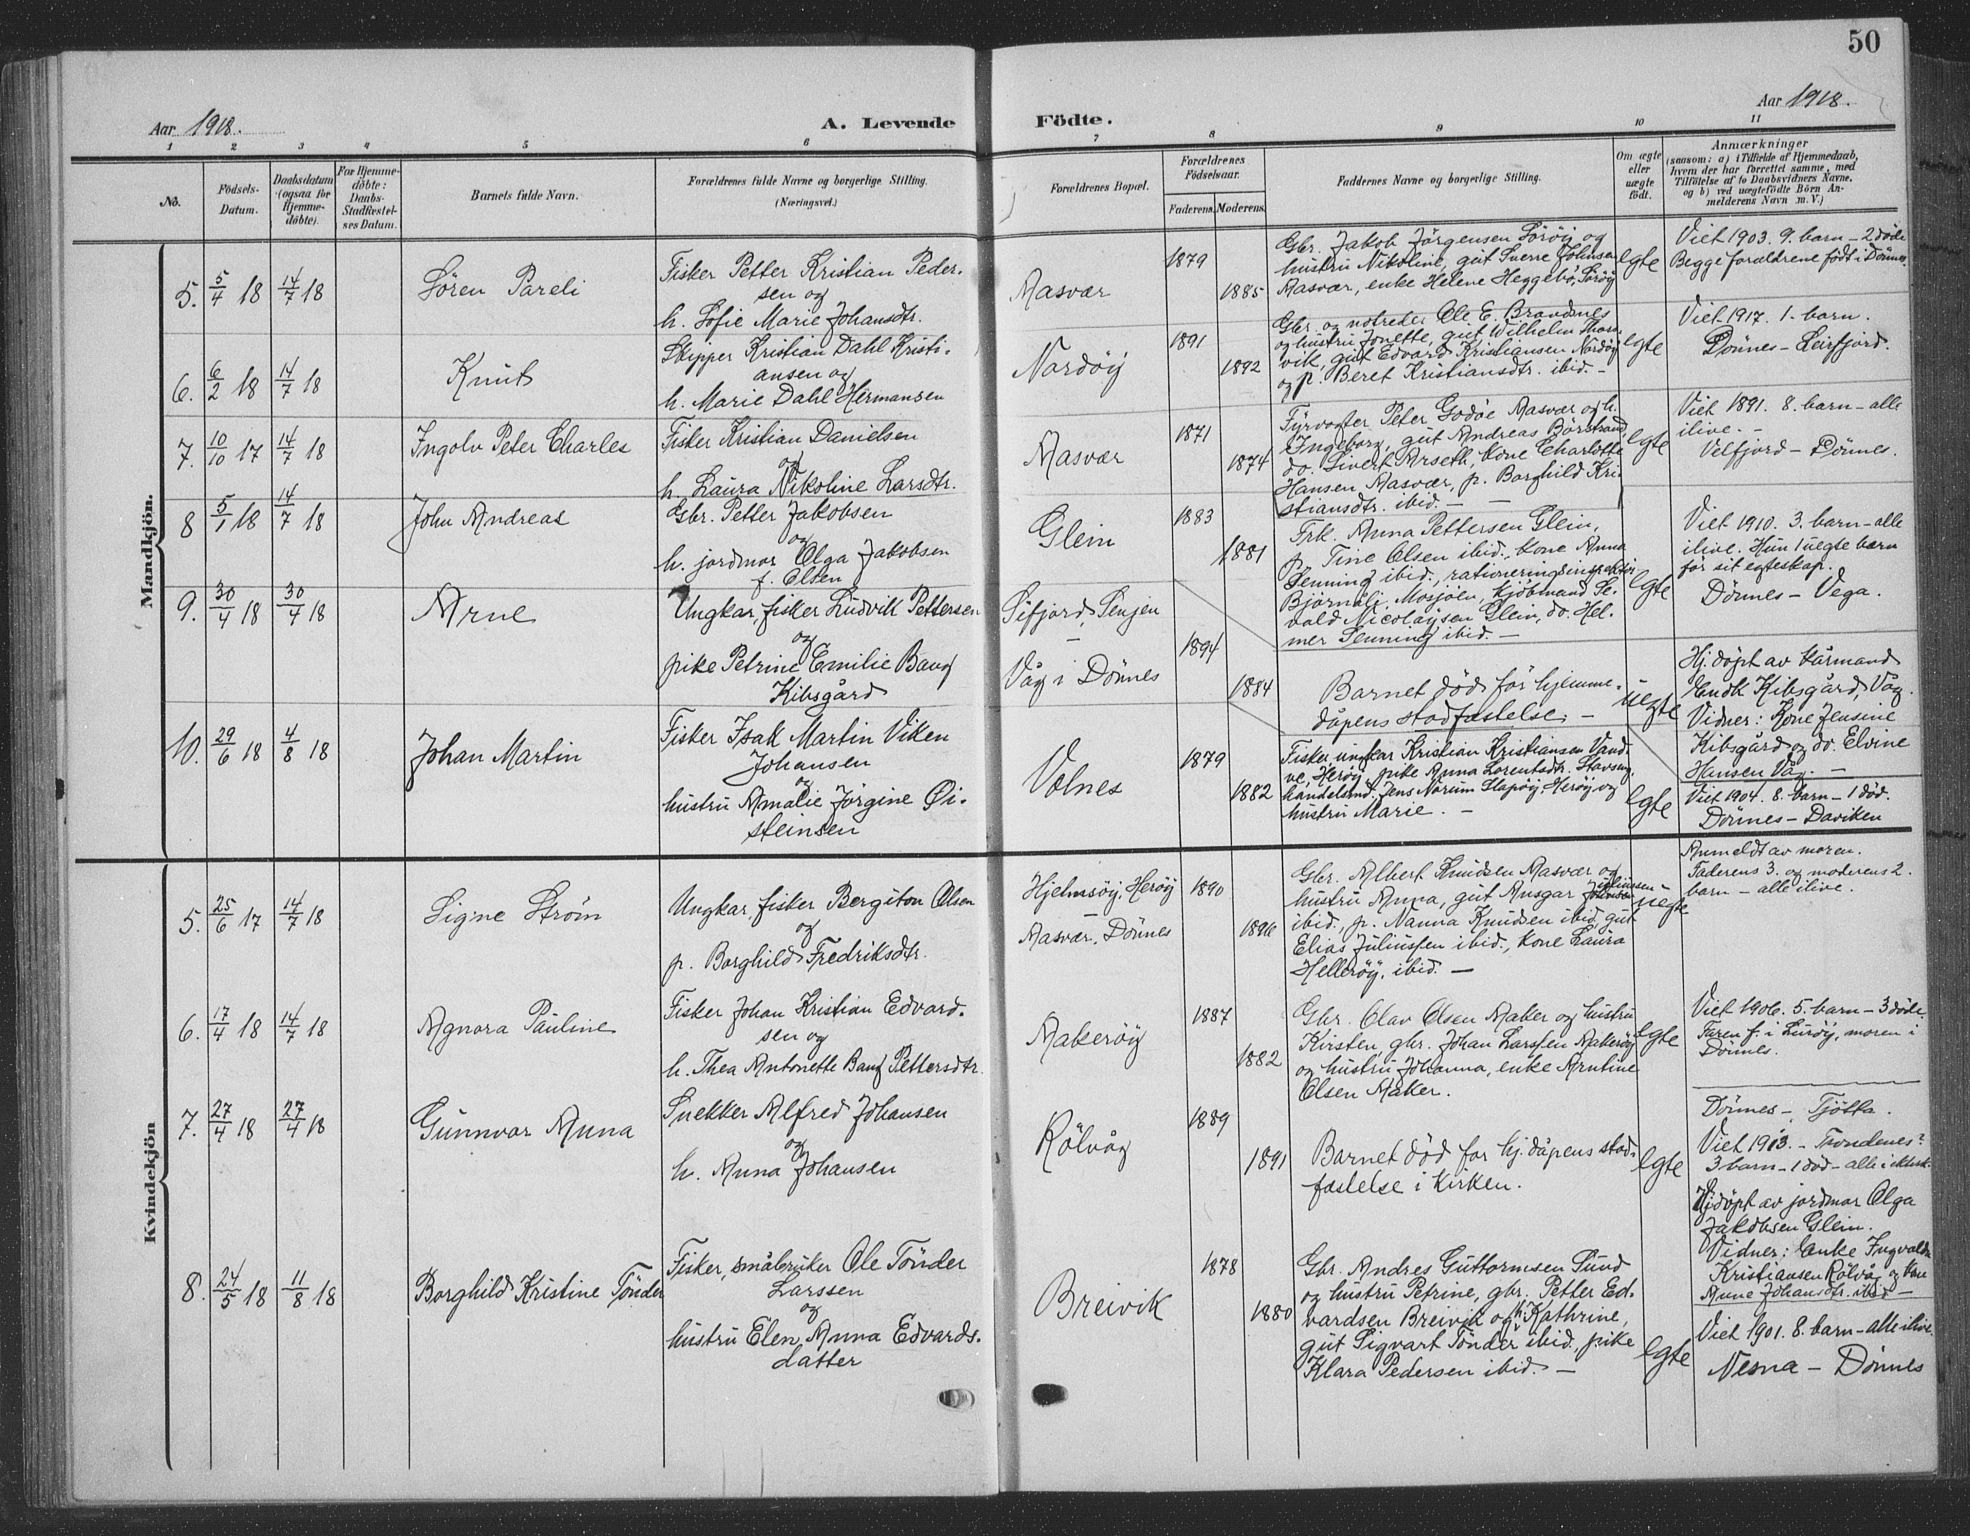 50
Aar 1918.
A. Levende
Födte.
Aar 1918.
1 2 3 4 5 6 7 8 9 10 11
No.
Födsels-
Datum.
Daabsdatum
(ogsaa for
Hjemme-
döbte).
For Hjemme-
döbte:
Daabs-
Stadfæstel-
ses Datum.
Barnets fulde Navn.
Forældrenes fulde Navne og borgerlige Stilling.
(Næringsvei.)
Forældrenes Bopæl.
Forældrenes
Födselsaar.
Faderens.
Moderens.
Faddernes Navne og borgerlige Stilling.
Om ægte
eller
uægte
født.
Anmærkninger
(saasom: a) i Tilfælde af Hjemmedaab,
hvem der har forrettet samme, med
Tilföielse af to Daabsvidners Navne,
og b) ved uægtefödte Börn An-
melderens Navn m. V.)
Mandkjön.
5. 5/4 18 14/7 18
Sören Pareli
Fisker Petter Kristian Peder-
sen og
h. Sofie Marie Johansdtr.
Aasvær
1879
1885
Gbr. Jakob Jørgensen Söröy og
hustru Nikoline, gut Sverre Johansen
Aasvær, enke Helene Heggebö, Söröy
egte
Viet 1903. 9. barn – 2 döde
Begge forældrene født i Dönnes.
6. 6/2 18 14/7 18
Knut
Skipper Kristian Dahl Kristi-
ansen og
h. Marie Dahl Hermansen
Nordöy
1891
1892
Gbr. og notreder Ole E. Brandsnes
og hustru Jonette, gut Wilhelm Thors-
vik, gut Edvard Kristiansen Nordöy
og p. Beret Kristiansdtr. ibid. –
egte
Viet 1917. 1. barn.
Dönnes – Leirfjord.
7. 10/10 17 14/7 18
Ingolv Peter Charles
Fisker Kristian Danielsen
og
h. Laura Nikoline Larsdtr.
Aasvær
1871
1874
Fyrvogter Peter Godöe Aasvær og h.
Ingeborg, gut Andreas Börstrand
do. Sivert Arseth, kone Charlotte
Hansen Aasvær, p. Borghild Kri-
stiansdtr. ibid. –
egte
Viet 1891. 8. barn – alle
ilive. –
Velfjord – Dönnes.
8 5/1 18 14/7 18
John Andreas
Gbr. Petter Jakobsen
og
h. jordmor Olga Jakobsen
f. Olsen
Glein
1883
1881
Frk. Anna Pettersen Glein,
p. Tine Olsen ibid., kone Anna
Jenning ibid., rationeringsinspektør
Björnåli, Mosjöen, kjöbmand Se-
vald Nicolaysen Glein, do. Hel-
mer Jenning ibid. –
egte
Viet 1910. 3. barn – alle
ilive. Hun 1 uegte barn
för sit egteskap.
Dönnes – Vega.
9. 30/4 18 30/4 18
Arne
Ungkar, fisker Ludvik Pettersen
og
pike Petrine Emilie Bang
Kibsgård
Sifjord, Senjen
–
Våg i Dönnes
1894
1884
Barnet död för hjemme-
dåpens stadfæstelse. –
uegte
Hj. döpt av vårmand
Endk Kibsgård, Våg.
Vidner: Kone Jensine
Kibsgård og do. Elvine
Hansen Våg. –
10. 29/6 18 4/8 18
Johan Martin
Fisker Isak Martin Viken
Johansen
og
hustru Amalie Jörgine Öi-
steinsen
Volnes
1879
1882
Fisker ungkar Kristian Kristiansen Vand-
ve, Heröy, pike Anna Lorentsdtr. Stavseng
handelsmd. Jens Norum Slapöy Heröy og
hustru Marie. –
egte
Viet 1904. 8. barn – 1 död.
Dönnes – Daviken
Kvindekjön
5. 25/6 17 14/7 18
Signe Ström
Ungkar, fisker Bergiton Olsen
og
p. Borghild Fredriksdtr.
Hjelmsöy, Heröy
–
Aasvær, Dönnes
1890
1896
Gbr. Albert Knudsen Aasvær og
hustru Anna, gut Ansgar Juliussen
ibid., p. Nanna Knudsen ibid, gut
Elias Juliussen ibid., kone Laura
Helleröy, ibid. –
uegte
Anmeldt av moren.
Faderens 3. og moderens 2.
barn – alle ilive.
6. 17/4 18 14/7 18
Agnora Pauline
Fisker Johan Kristian Edvard-
sen og
h. Thea Antonette Bang Pettersdtr.
Makeröy
1887
1882
Gbr. Olav Olsen Maker og hustru
Kirsten, gbr. Johan Larssen Makeröy
og hustru Johanna, enke Arntine
Olsen Maker.
egte
Viet 1906. 5. barn – 3 döde.
Faren f. i Luröy, moren i
Dönnes.
7. 27/4 18 27/4 18
Gunnvor Anna
Snekker Alfred Johansen
og
h. Anna Johansen
Rölvåg
1889
1891
Barnet död för hj. dåpens stad-
fæstelse i kirken.
egte
Dönnes – Tjötta.
Viet 1913. – Trondenes?
3 barn – 1 död – alle i ektesk.
Hjdöpt av jordmor Olga
Jakobsen Glein.
Vidner: Enke Ingvalda
Kristiansen Rölvåg og kone
Anne Johansdtr. ibid –
8. 24/5 18 11/8 18
Borghild Kristine Tönder
Fisker, småbruker Ole Tönder
Larssen
og
hustru Elen Anna Edvards-
datter
Breivik
1878
1880
Gbr. Andres Guttormsen Sund
og hustru Petrine, gbr. Petter Ed-
vardsen Breivik og h. Kathrine,
gut Sigvart Tönder ibid., pike
Klara Pedersen ibid. –
egte
Viet 1901. 8. barn – alle ilive.
Nesna – Dönnes